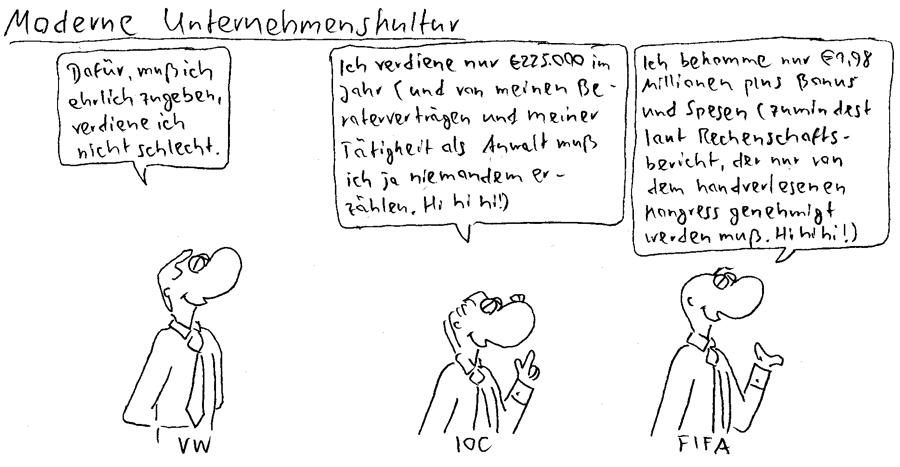 Moderne Unternehmenskultur
Dafür, muß ich
ehrlich zugeben,
verdiene ich
nicht schlecht.
Ich verdiene nur €225.000 im
Jahr (und von meinen Be-
raterverträgen und meiner
Tätigkeit als Anwalt muß
ich ja niemandem er-
zählen. Hi hi hi!)
Ich bekomme nur €1,98
Millionen plus Bonus
und Spesen (zumindest
laut Rechenschafts-
bericht, der nur von
dem handverlesenen
Kongress genehmigt
werden muß. Hi hi hi!)
VW
IOC
FIFA